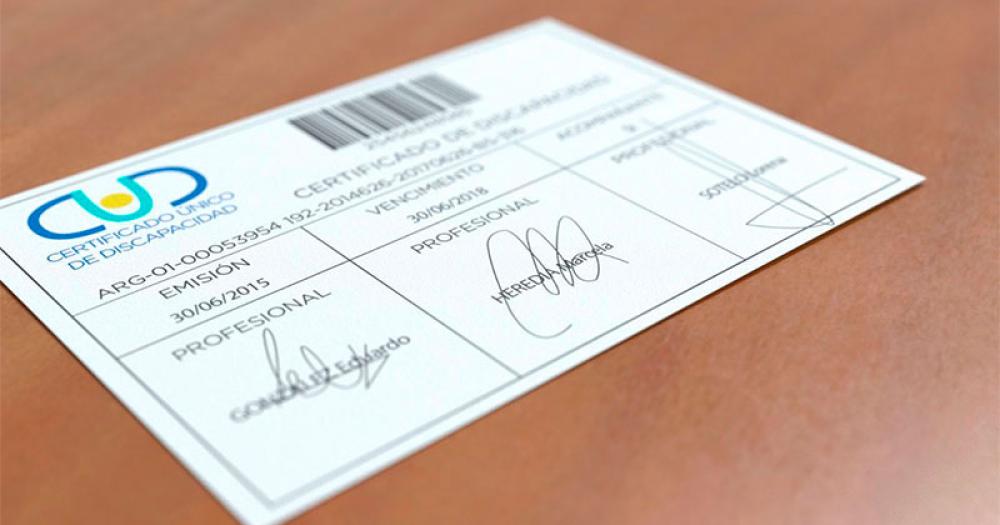 CUD
CERTIFICADO ÚNICO
DE DISCAPACIDAD
CERTIFICADO DE DISCAPACIDAD
ARG-01-00053954 192-2014626-20170626-BS-316
EMISIÓN
30/06/2015
VENCIMIENTO
30/06/2018
ACOMPAÑANTE
PROFESIONAL
GONZALEZ Eduardo
PROFESIONAL
HEREDIA Marcela
PROFESIONAL
SOTELO Lorena